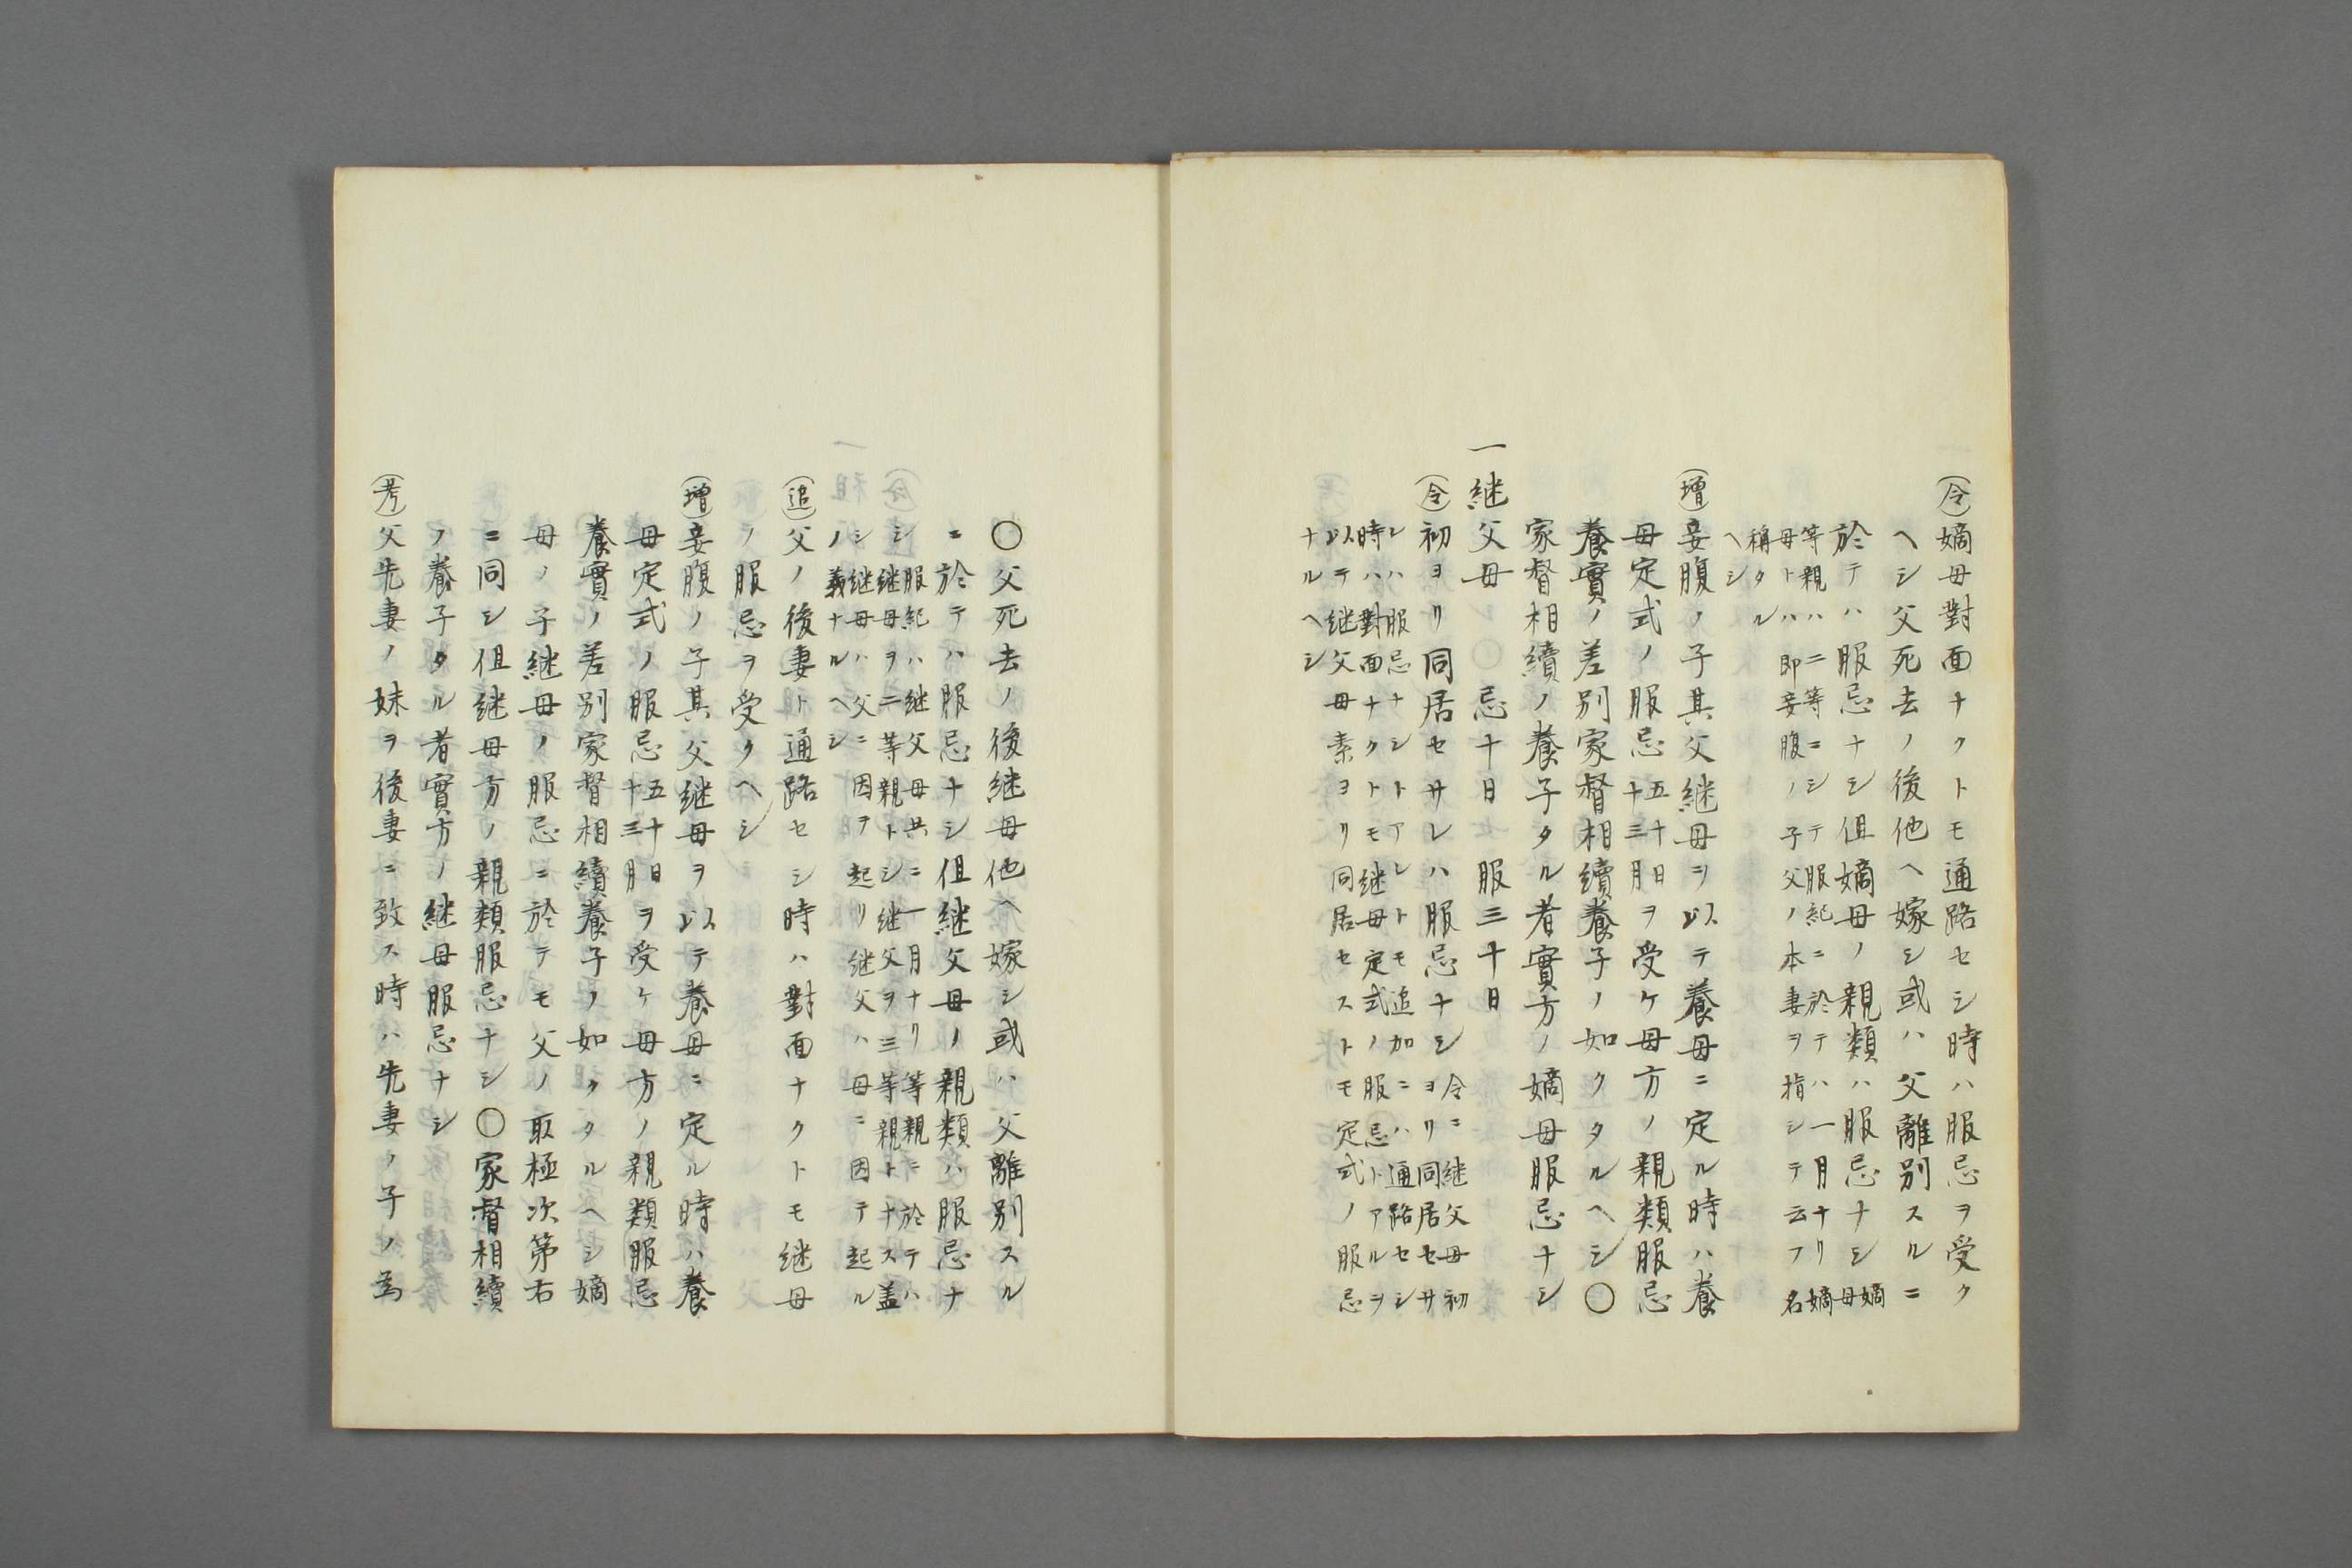 (令)嫡母對面ナクトモ通路セシ時ハ服忌ヲ受ク
ヘシ父死去ノ後他ヘ嫁シ或ハ父離別スルニ
於テハ服忌ナシ但嫡母ノ親類ハ服忌ナシ嫡母
等親ハ二等ニシテ服紀ニ於テハ一月ナリ嫡
母トハ即妾腹ノ子父ノ本妻ヲ指シテ云フ名
稱タル
ヘシ
(増)妾腹ノ子其父継母ヲ以テ養母ニ定ル時ハ養
母定式ノ服忌五十日十三月ヲ受ケ母方ノ親類服忌
養實ノ差別家督相續養子ノ如クタルヘシ〇
家督相續ノ養子タル者實方ノ嫡母服忌ナシ
一継父母 忌十日 服三十日
(令)初ヨリ同居セサレハ服忌ナシ
令ニ継父母初
ヨリ同居セサ
レハ服忌ナシトアレトモ追加ニハ通路セシ
時ハ對面ナクトモ継母定式ノ服忌トアルヲ
以テ継父母素ヨリ同居セストモ定式ノ服忌
ナルヘシ
〇父死去ノ後継母他ヘ嫁シ或ハ父離別スル
ニ於テハ服忌ナシ但継父母ノ親類ハ服忌ナ
シ
服紀ハ継父母共ニ一月ナリ等親ニ於テハ
継母ヲ二等親トシ継父ヲ三等親トナス蓋
シ継母ハ父ニ因ヲ起リ継父ハ母ニ因テ起ル
ノ義ナルヘシ
(追)父ノ後妻ト通路セシ時ハ對面ナクトモ継母
ノ服忌ヲ受クヘシ
(増)妾腹ノ子其父継母ヲ以テ養母ニ定ル時ハ養
母定式ノ服忌五十日十三月ヲ受ケ母方ノ親類服忌
養實ノ差別家督相續養子ノ如クタルヘシ嫡
母ノ子継母ノ服忌ニ於テモ父ノ取極次第右
ニ同シ但継母方ノ親類服忌ナシ〇家督相續
ノ養子タル者實方ノ継母服忌ナシ
(考)父先妻ノ妹ヲ後妻ニ致ス時ハ先妻ノ子ノ為